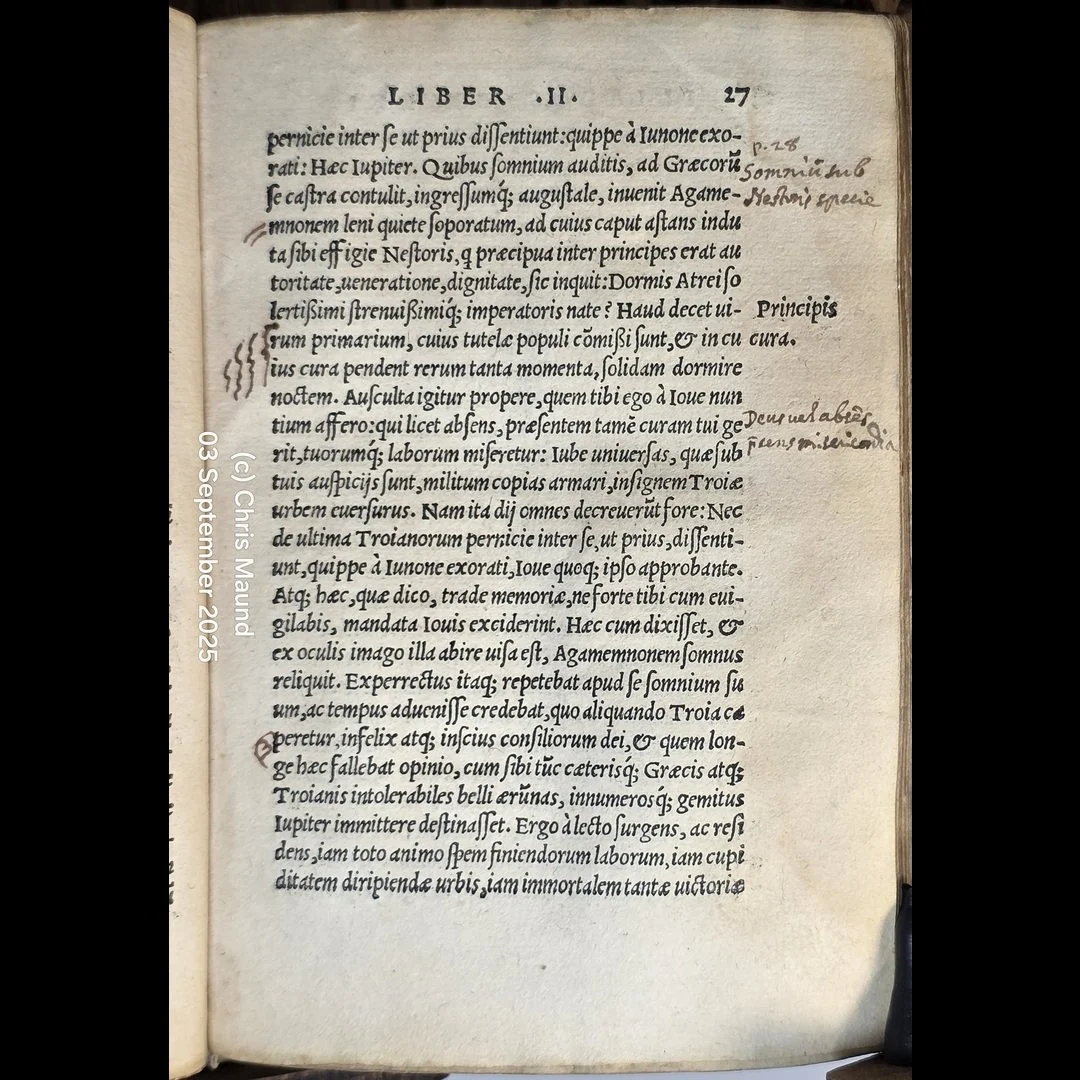 LIBER .II. 27
pernicie inter se ut prius dissentiunt: quippe à Iunone exo-
rati: Hæc Iupiter. Quibus somnium auditis, ad Græcorũ
se castra contulit, ingressumq́; augustale, inuenit Agame-
mnonem leni quiete soporatum, ad cuius caput astans indu
ta sibi effigie Nestoris, q præcipua inter principes erat au
toritate, ueneratione, dignitate, sic inquit: Dormis Atrei so
lertißimi strenuißimiq́; imperatoris nate? Haud decet ui-
rum primarium, cuius tutelæ populi cõmißi sunt, & in cu
ius cura pendent rerum tanta momenta, solidam dormire
noctem. Ausculta igitur propere, quem tibi ego à Ioue nun
tium affero: qui licet absens, præsentem tamẽ curam tui ge
rit, tuorumq́; laborum miseretur: Iube uniuersas, quæ sub
tuis auspicijs sunt, militum copias armari, insignem Troiæ
urbem euersurus. Nam ita dij omnes decreuerũt fore: Nec
de ultima Troianorum pernicie inter se, ut prius, dissenti-
unt, quippe à Iunone exorati, Ioue quoq; ipso approbante.
Atq; hæc, quæ dico, trade memoriæ, ne forte tibi cum eui-
gilabis, mandata Iouis exciderint. Hæc cum dixisset, &
ex oculis imago illa abire uisa est, Agamemnonem somnus
reliquit. Experrectus itaq; repetebat apud se somnium su
um, ac tempus aduenisse credebat, quo aliquando Troia ca
peretur, infelix atq; inscius consiliorum dei, & quem lon-
ge hæc fallebat opinio, cum sibi tũc cæterisq́; Græcis atq;
Troianis intolerabiles belli ærũnas, innumerosq́; gemitus
Iupiter immittere destinasset. Ergo à lecto surgens, ac resi
dens, iam toto animo spem finiendorum laborum, iam cupi
ditatem diripiendæ urbis, iam immortalem tantæ uictoriæ
p. 28
Somniũ sub
Nestoris specie
Principis
cura.
Deus uel absẽs
p̃sens misericordia
(c) Chris Maund
03 September 2025